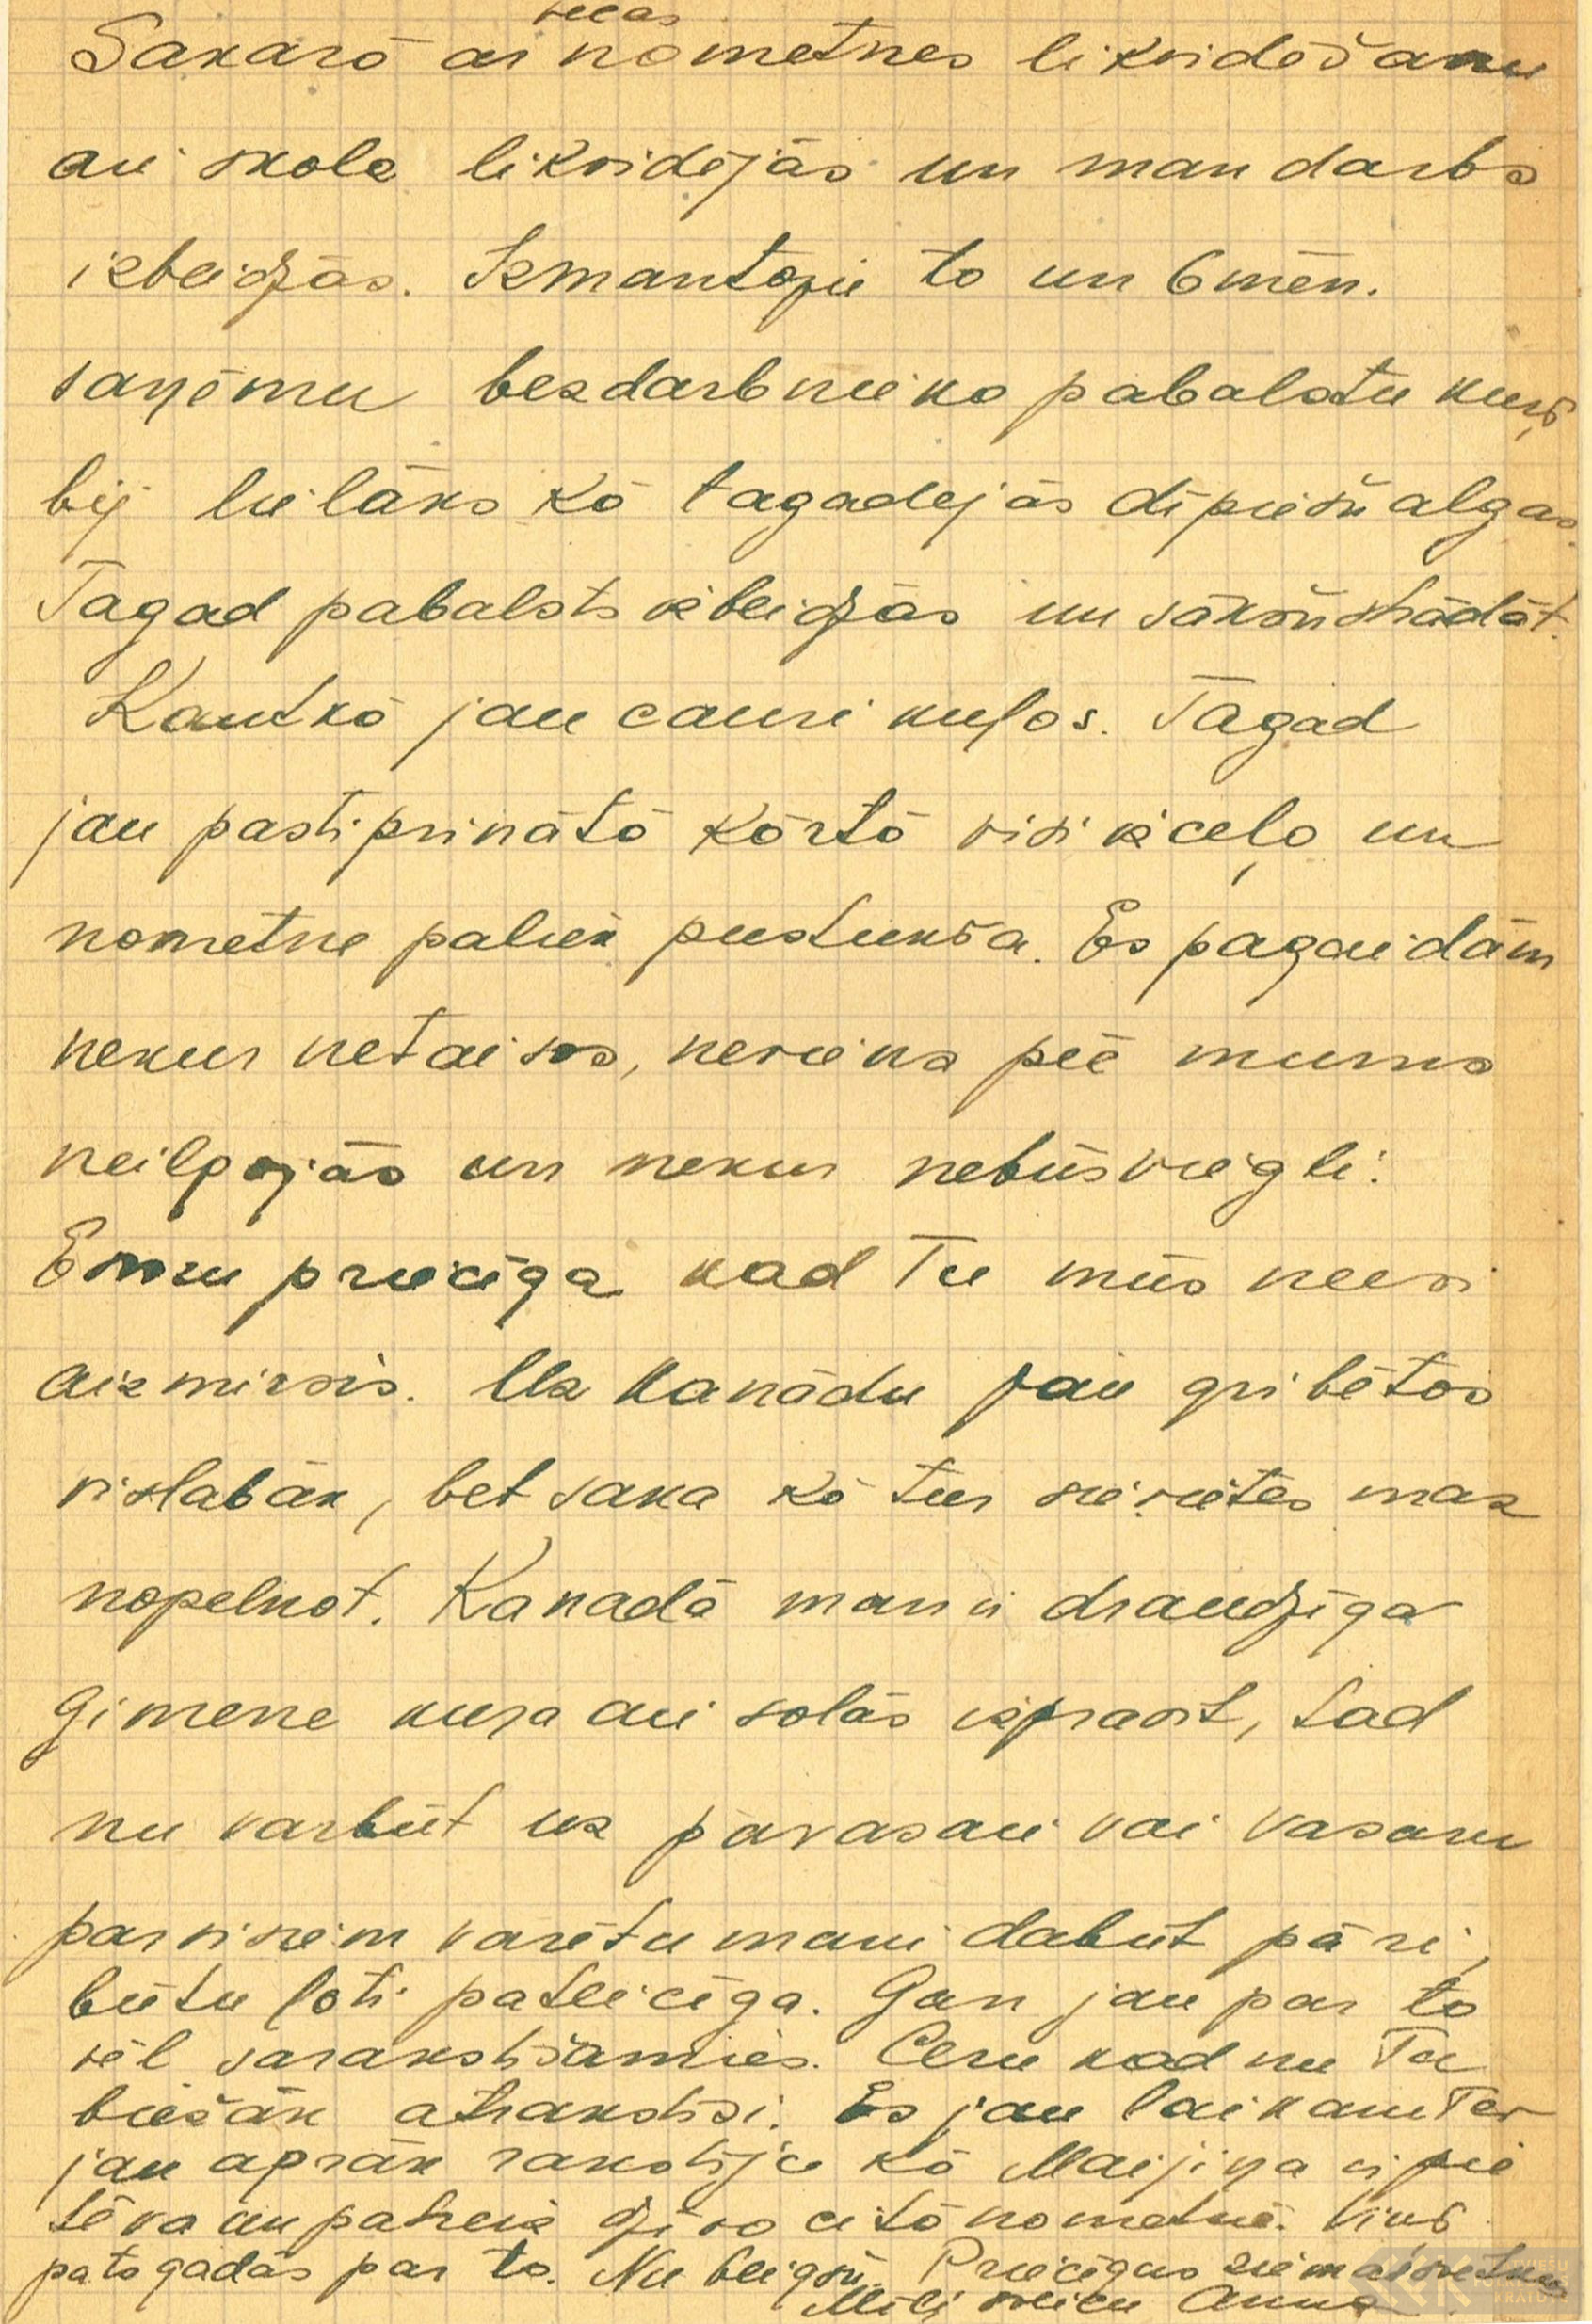 vecās
Sakarā ar nometnes likvidēšanu
arī skola likvidējās un man darbs
izbeidzās. Izmantoju to un 6 mēn.
saņēmu bezdarbnieka pabalstu kurš
bij lielāks kā tagadējās dīpiešu algas.
Tagad pabalsts izbeidzās un sākšu strādāt.
Kautkā jau cauri kuļos. Tagad
jau pastiprinātā kārtā visi izceļo un
nometne paliek pustukša. Es pagaidām
nekur netaisos, neviens pēc mums
neilgojās un nekur nebūs viegli.
Esmu priecīga kad Tu mūs neesi
aizmirsis. Uz Kanādu jau gribētos
vislabāk, bet saka kā tur sievietes maz
nopelnot. Kanadā man ir draudzīga
ģimene kura arī solās izprasīt, tad
nu varbūt uz pavasari vai vasaru
par visiem varētu mani dabūt pāri,
būtu ļoti pateicīga. Gan jau par to
vēl sarakstīsamies. Ceru kad nu Tu
biežāk atrakstīsi. Es jau laikam Tev
jau agrāk rakstīju kā Maijiņa ir pie
tēva un patreiz dzīvo citā nometnē. Viņš
pats gādās par to. Nu beigšu. Priecīgus ziemassvētkus
Mīļi sveicu Anna